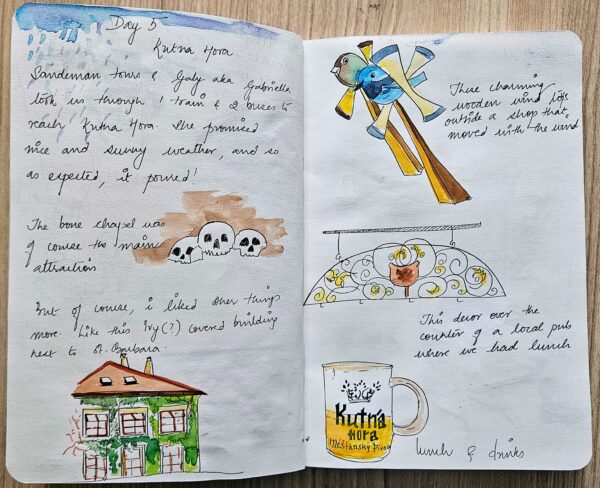 Day 5
Kutna Hora
Sandeman tours & Gaby aka Gabriella
took us through 1 train & 2 buses to
reach Kutna Hora. She promised
nice and sunny weather, and so
as expected, it poured!
The bone chapel was
of course the main
attraction
But of course, i liked other things
more. Like this Ivy(?) covered building
next to St. Barbara.
These charming
wooden wind
outside a shop that
moved with the wind
This decor over the
counter of a local pub
where we had lunch
Kutná
Hora
Měšťanský Pivo
lunch & drinks